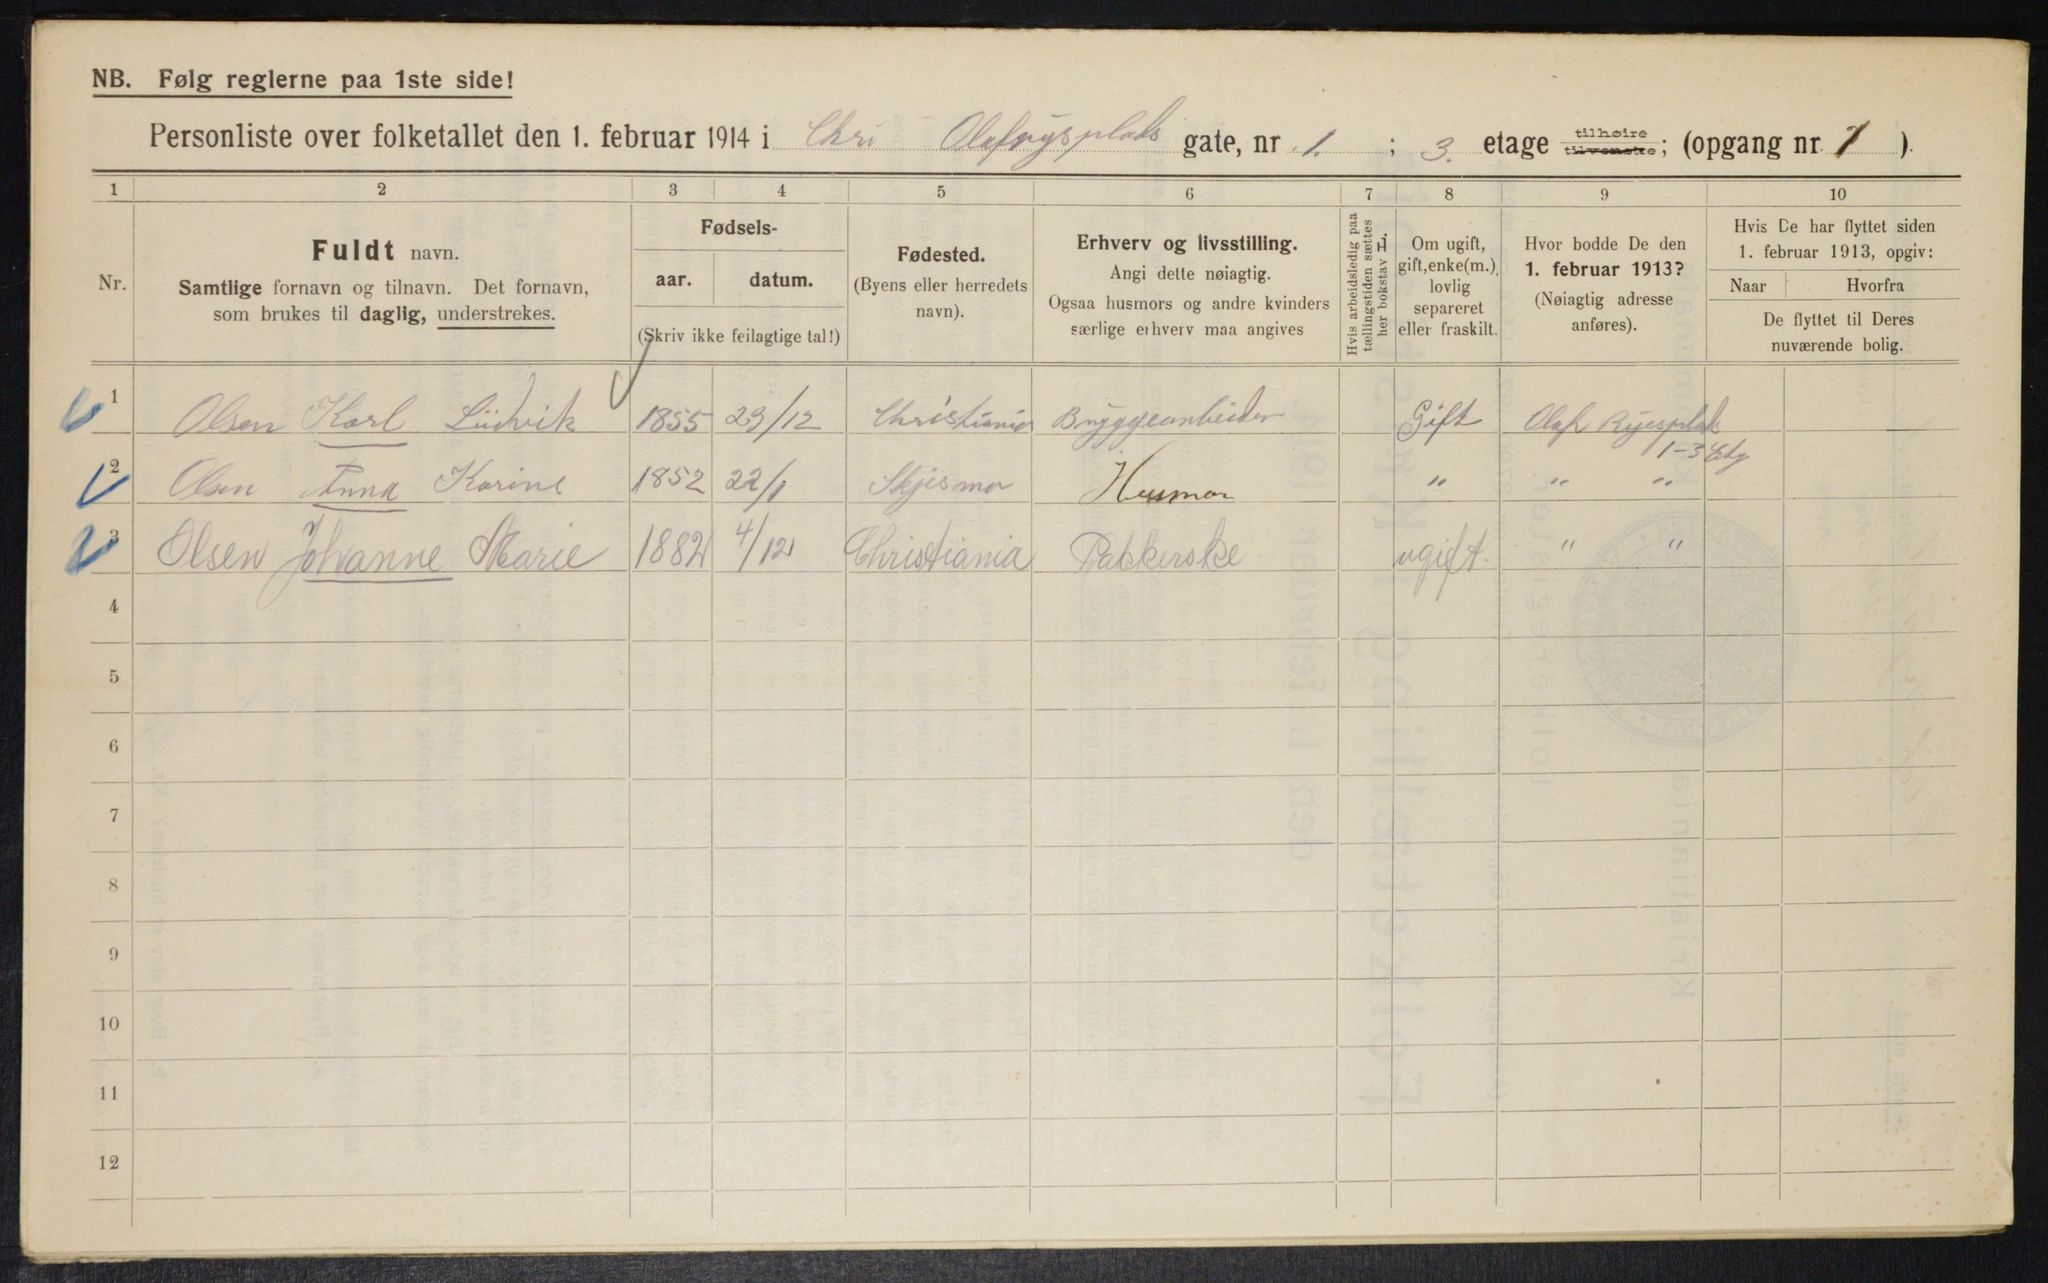 NB. Følg reglerne paa 1ste side!
Personliste over folketallet den 1. februar 1914 i Chri Olafrysplads gate, nr. 1. ; 3. etage tilhøire tilvenstre; (opgang nr. 1 ).
1 2 3 4 5 6 7 8 9 10
Nr.
Fuldt navn.
Samtlige fornavn og tilnavn. Det fornavn,
som brukes til daglig, understrekes.
Fødsels-
aar. datum.
(Skriv ikke feilagtige tal!)
Fødested.
(Byens eller herredets
navn).
Erhverv og livsstilling.
Angi dette nøiagtig.
Ogsaa husmors og andre kvinders
særlige erhverv maa angives
Hvis arbeidsledig paa
tællingstiden sættes
her bokstav L.
Om ugift,
gift, enke(m.),
lovlig
separeret
eller fraskilt.
Hvor bodde De den
1. februar 1913?
(Nøiagtig adresse
anføres).
Hvis De har flyttet siden
1. februar 1913, opgiv:
Naar Hvorfra
De flyttet til Deres
nuværende bolig.
1 Olsen Karl Ludvik 1855 23/12 Christiania Bryggearbeider Gift Olaf Ryesplads
1-3 Etg
2 Olsen Anna Karine 1852 22/1 Skjesmo Husmor " " "
3 Olsen Johanne Marie 1882 4/12 Christiania Pakkerske ugift. " "
4
5
6
7
8
9
10
11
12